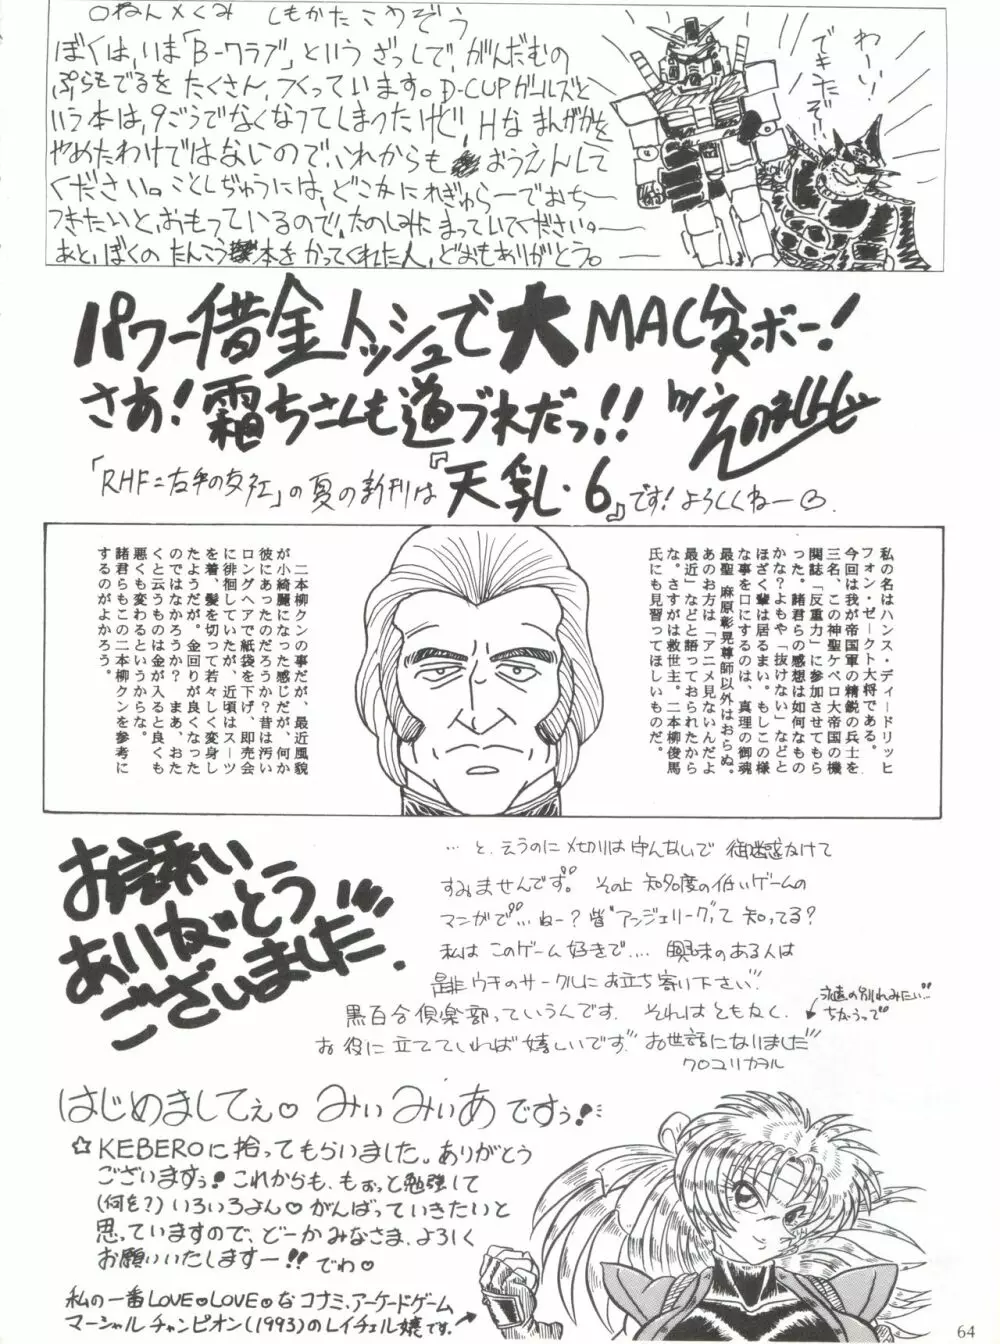 ○ねん×くみ しもかたこうぞう
ぼくは、いま「B-クラブ」というざっしで、がんだむの
ぷらもでるをたくさん、つくっています。D-CUPガールズと
いう本は、9ごうでなくなってしまったけど、Hなまんがかを
やめたわけではないので、これからもおうえんして
ください。ことしぢゅうには、どこかにれぎゅらーでおち
つきたいと、おもっているので、たのしみにまっていてください。
あと、ぼくのたんこう本をかってくれた人、どおもありがとう。
わーい!
できたぞ!!
パワー借金トッシュで大MAC貧ボー!
さあ!霜ちさんも道づれだっ!!
「RHF=右手の女社」の夏の新刊は『天乳・6』です!よろしくねー
私の名はハンス・ディードリッヒ
フォン・ゼークト大将である。
今回は我が帝国軍の精鋭の兵士を
三名、この神聖ケベロ大帝国の機
関誌「反重力」に参加させてもら
った。諸君らの感想は如何なもの
かな?よもや「抜けない」などと
ほざく輩は居るまい。もしこの様
な事を口にするのは、真理の御魂
最聖 麻原彰晃尊師以外はおらぬ。
あのお方は「アニメ見ないんだよ
最近」などと語っておられたから
な。さすがは救世主。二本柳俊馬
氏にも見習ってほしいものだ。
二本柳クンの事だが、最近風貌
が小綺麗になった感じだが、何か
彼にあったのだろうか?昔は汚い
ロングヘアで紙袋を下げ、即売会
に徘徊していたが、近頃はスーツ
を着、髪を切って若々しく変身し
たようだが。金回りが良くなった
のではなかろうか?まあ、おた
くと云うものは金が入ると良くも
悪くも変わるというからな。
諸君らもこの二本柳クンを参考に
するのがよかろう。
お誘い
ありがとう
ございました
…と、えうのに〆切りは守んないで御迷惑かけて
すみませんです。その上知名度の低いゲームの
マンガで…ねー?皆"アンジェリーク"って知ってる?
私はこのゲーム好きで…。興味のある人は
是非ウチのサークルにお立ち寄り下さい。
黒百合倶楽部っていうんです。それはともかく、
永遠の別れみたい…
ちがうって
お役に立てていれば嬉しいです。お世話になりました
クロユリカヲル
はじめましてぇ♡みぃみぃあですぅ!
☆KEBEROに拾ってもらいました。ありがとう
ございますぅ!これからも、もぉっと勉強して
(何を?)いろいろよん♡がんばっていきたいと
思っていますので、どーかみなさま、よろしく
お願いいたしますー!!でわ♡
私の一番LOVE♡LOVE♡なコナミ、アーケードゲーム
マーシャルチャンピオン(1993)のレイチェル嬢です。
64